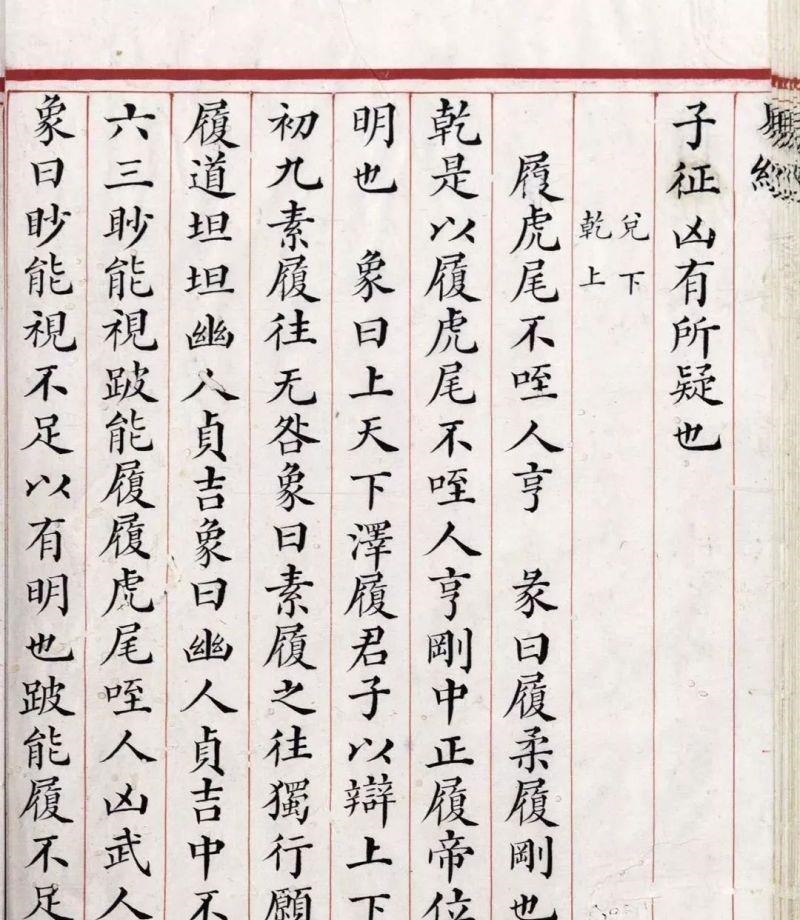 子征凶有所疑也
兌下
乾上
履虎尾不咥人亨 彖曰履柔履剛也
乾是以履虎尾不咥人亨剛中正履帝位
明也 象曰上天下澤履君子以辯上下
初九素履往无咎象曰素履之往獨行願
履道坦坦幽人貞吉象曰幽人貞吉中不
六三眇能視跛能履履虎尾咥人凶武人
象曰眇能視不足以有明也跛能履不足